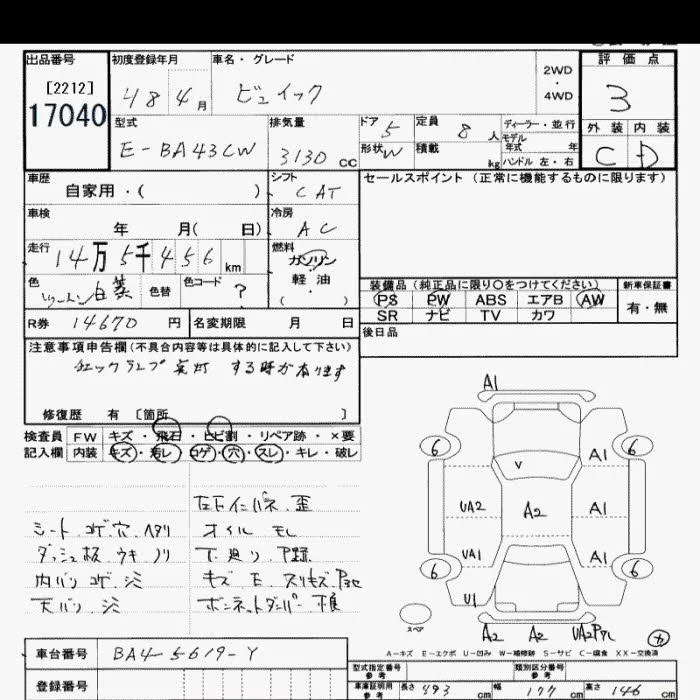 出品番号 初度登録年月 車名・グレード 評価点
[2212] 17040
H8年 4月 ビュイック 2WD・4WD 3
型式 排気量 ドア 5 定員 8人 ディーラー・並行 外装 内装
E-BA43CW 3130 CC 形状 W 積載 kg モデル年式 年 C D
ハンドル 左・右
車歴 シフト セールスポイント (正常に機能するものに限ります)
自家用・( ) CAT
車検 冷房
年 月( 日) AC
走行 燃料
14万5千456 km ガソリン・軽油 ( )
色 色替 色コード ? 装備品 (純正品に限り〇をつけてください) 新車保証書
PS PW ABS エアB AW 有・無
R券 14670円 名変期限 月 日 SR ナビ TV カワ
注意事項申告欄(不具合内容等は具体的に記入して下さい) 後日品
チェックランプ点灯 する時が有ります
修復歴 有 [箇所 ]
検査員 FW キズ・飛石・ヒビ割・リペア跡・×要
記入欄 内装 キズ・汚レ・コゲ・穴・スレ・キレ・破レ
シート コゲ.穴.ヘタリ オイル モレ
ダッシュ板 ウキ ノリ 下廻り
内バリ コゲ.シミ キズ E スリキズ
天バリ.シミ ボンネットダンパー 不良
A1
6 6
V A1
UA2 A2 A1
UA1 A1
6 6
U1
スペア
A2 A2
A-キズ E-エクボ U-凹み W-補修跡 S-サビ C-腐食 XX-交換済
車台番号 BA4-5619-Y 型式指定番号 参考 類別区分番号 参考
登録番号 車庫証明用 参考 長さ 493 cm 幅 177 cm 高さ 146 cm